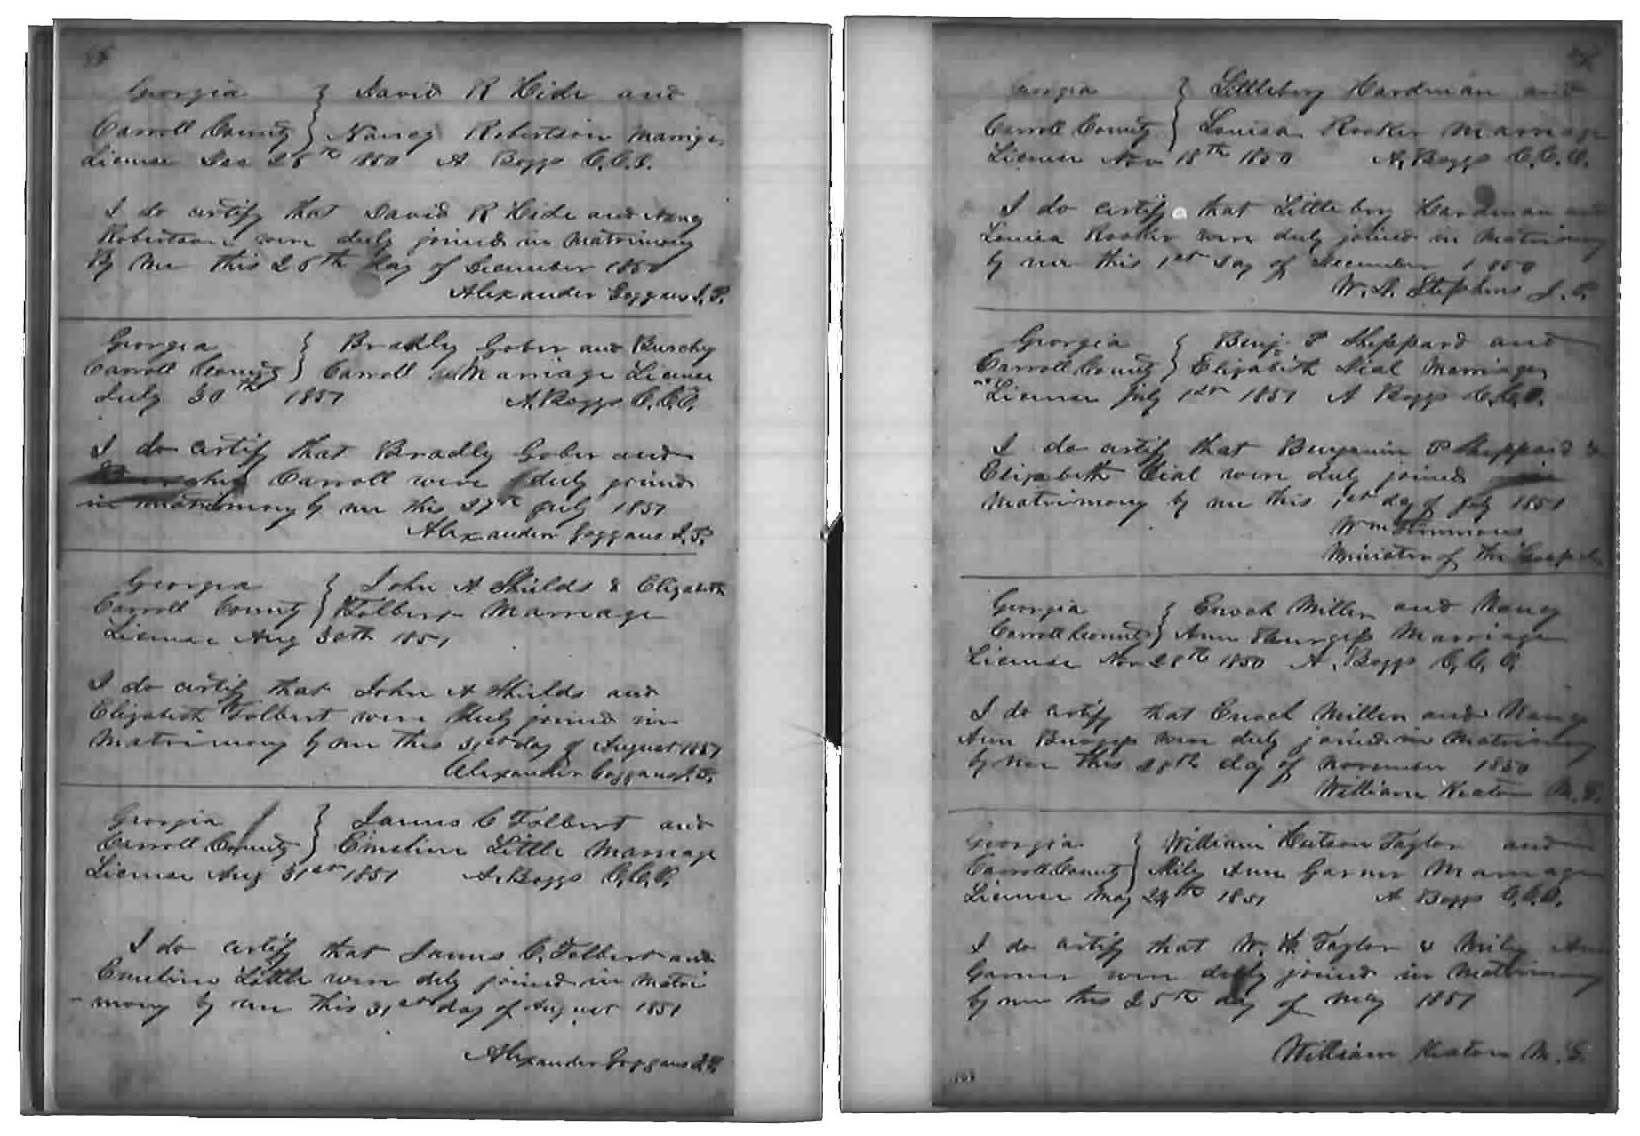 Georgia } David R Hide and
Carroll County } Nancy Robertson Marriage
License Dec 25th 1850 A Boggs C.C.O.
I do certify that David R Hide and Nancy
Robertson were duly joined in Matrimony
By me this 26th day of December 1850
Alexander Goggans J.P.
Georgia } Bradly Gober and Burchy
Carroll County } Carroll Marriage License
July 30th 1851 A. Boggs C.C.O.
I do certify that Bradly Gober and
Carroll were duly joined
in matrimony by me this 27th July 1851
Alexander Goggans J.P.
Georgia } John A Shields & Elizabeth
Carroll County } Tolbert Marriage
License Aug 30th 1851
I do certify that John A Shields and
Elizabeth Tolbert were duly joined in
Matrimony by me this 31st day of August 1851
Alexander Goggans J.P.
Georgia } James C Tolbert and
Carroll County } Emeline Little Marriage
License Aug 31st 1851 A. Boggs C.C.O.
I do certify that James C. Tolbert and
Emeline Little were duly joined in Matri
-mony by me this 31st day of August 1851
Alexander Goggans J.P.
Georgia } Littleberry Hardman and
Carroll County } Louisa Rooker Marriage
License Nov 18th 1850 A. Boggs C.C.O.
I do certify that Littlebery Hardman and
Louisa Rooker were duly joined in Matrimony
by me this 1st Day of December 1850
W. A. Stephens J.P.
Georgia } Benj. P Sheppard and
Carroll County } Elizabeth Dial Marriage
License July 1st 1851 A Boggs C.C.O.
I do certify that Benjamin P Sheppard &
Elizabeth Dial were duly joined in
Matrimony by me this 1st day of July 1851
Wm Simmons
Minister of the Gospel
Georgia } Enoch Miller and Nancy
Carroll County } Ann Burgess Marriage
License Nov 28th 1850 A. Boggs C.C.O.
I do certify that Enoch Miller and Nancy
Ann Burgess were duly joined in Matrimony
by me this 28th day of November 1850
William Keaton M.G.
Georgia } William Hutson Taylor and
Carroll County } Mily Ann Garner Marriage
License May 24th 1851 A Boggs C.C.O.
I do certify that W. H. Taylor & Mily Ann
Garner were duly joined in Matrimony
by me this 25th day of May 1851
William Keaton M.G.